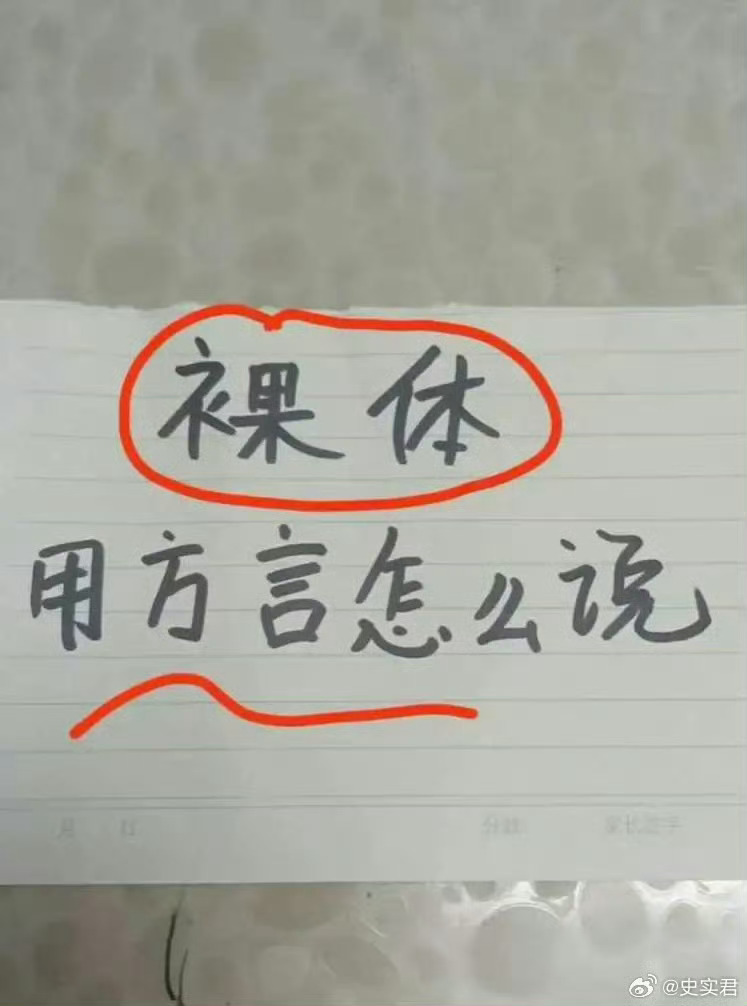 裸体
用方言怎么说
分数 家长签字
@史实君